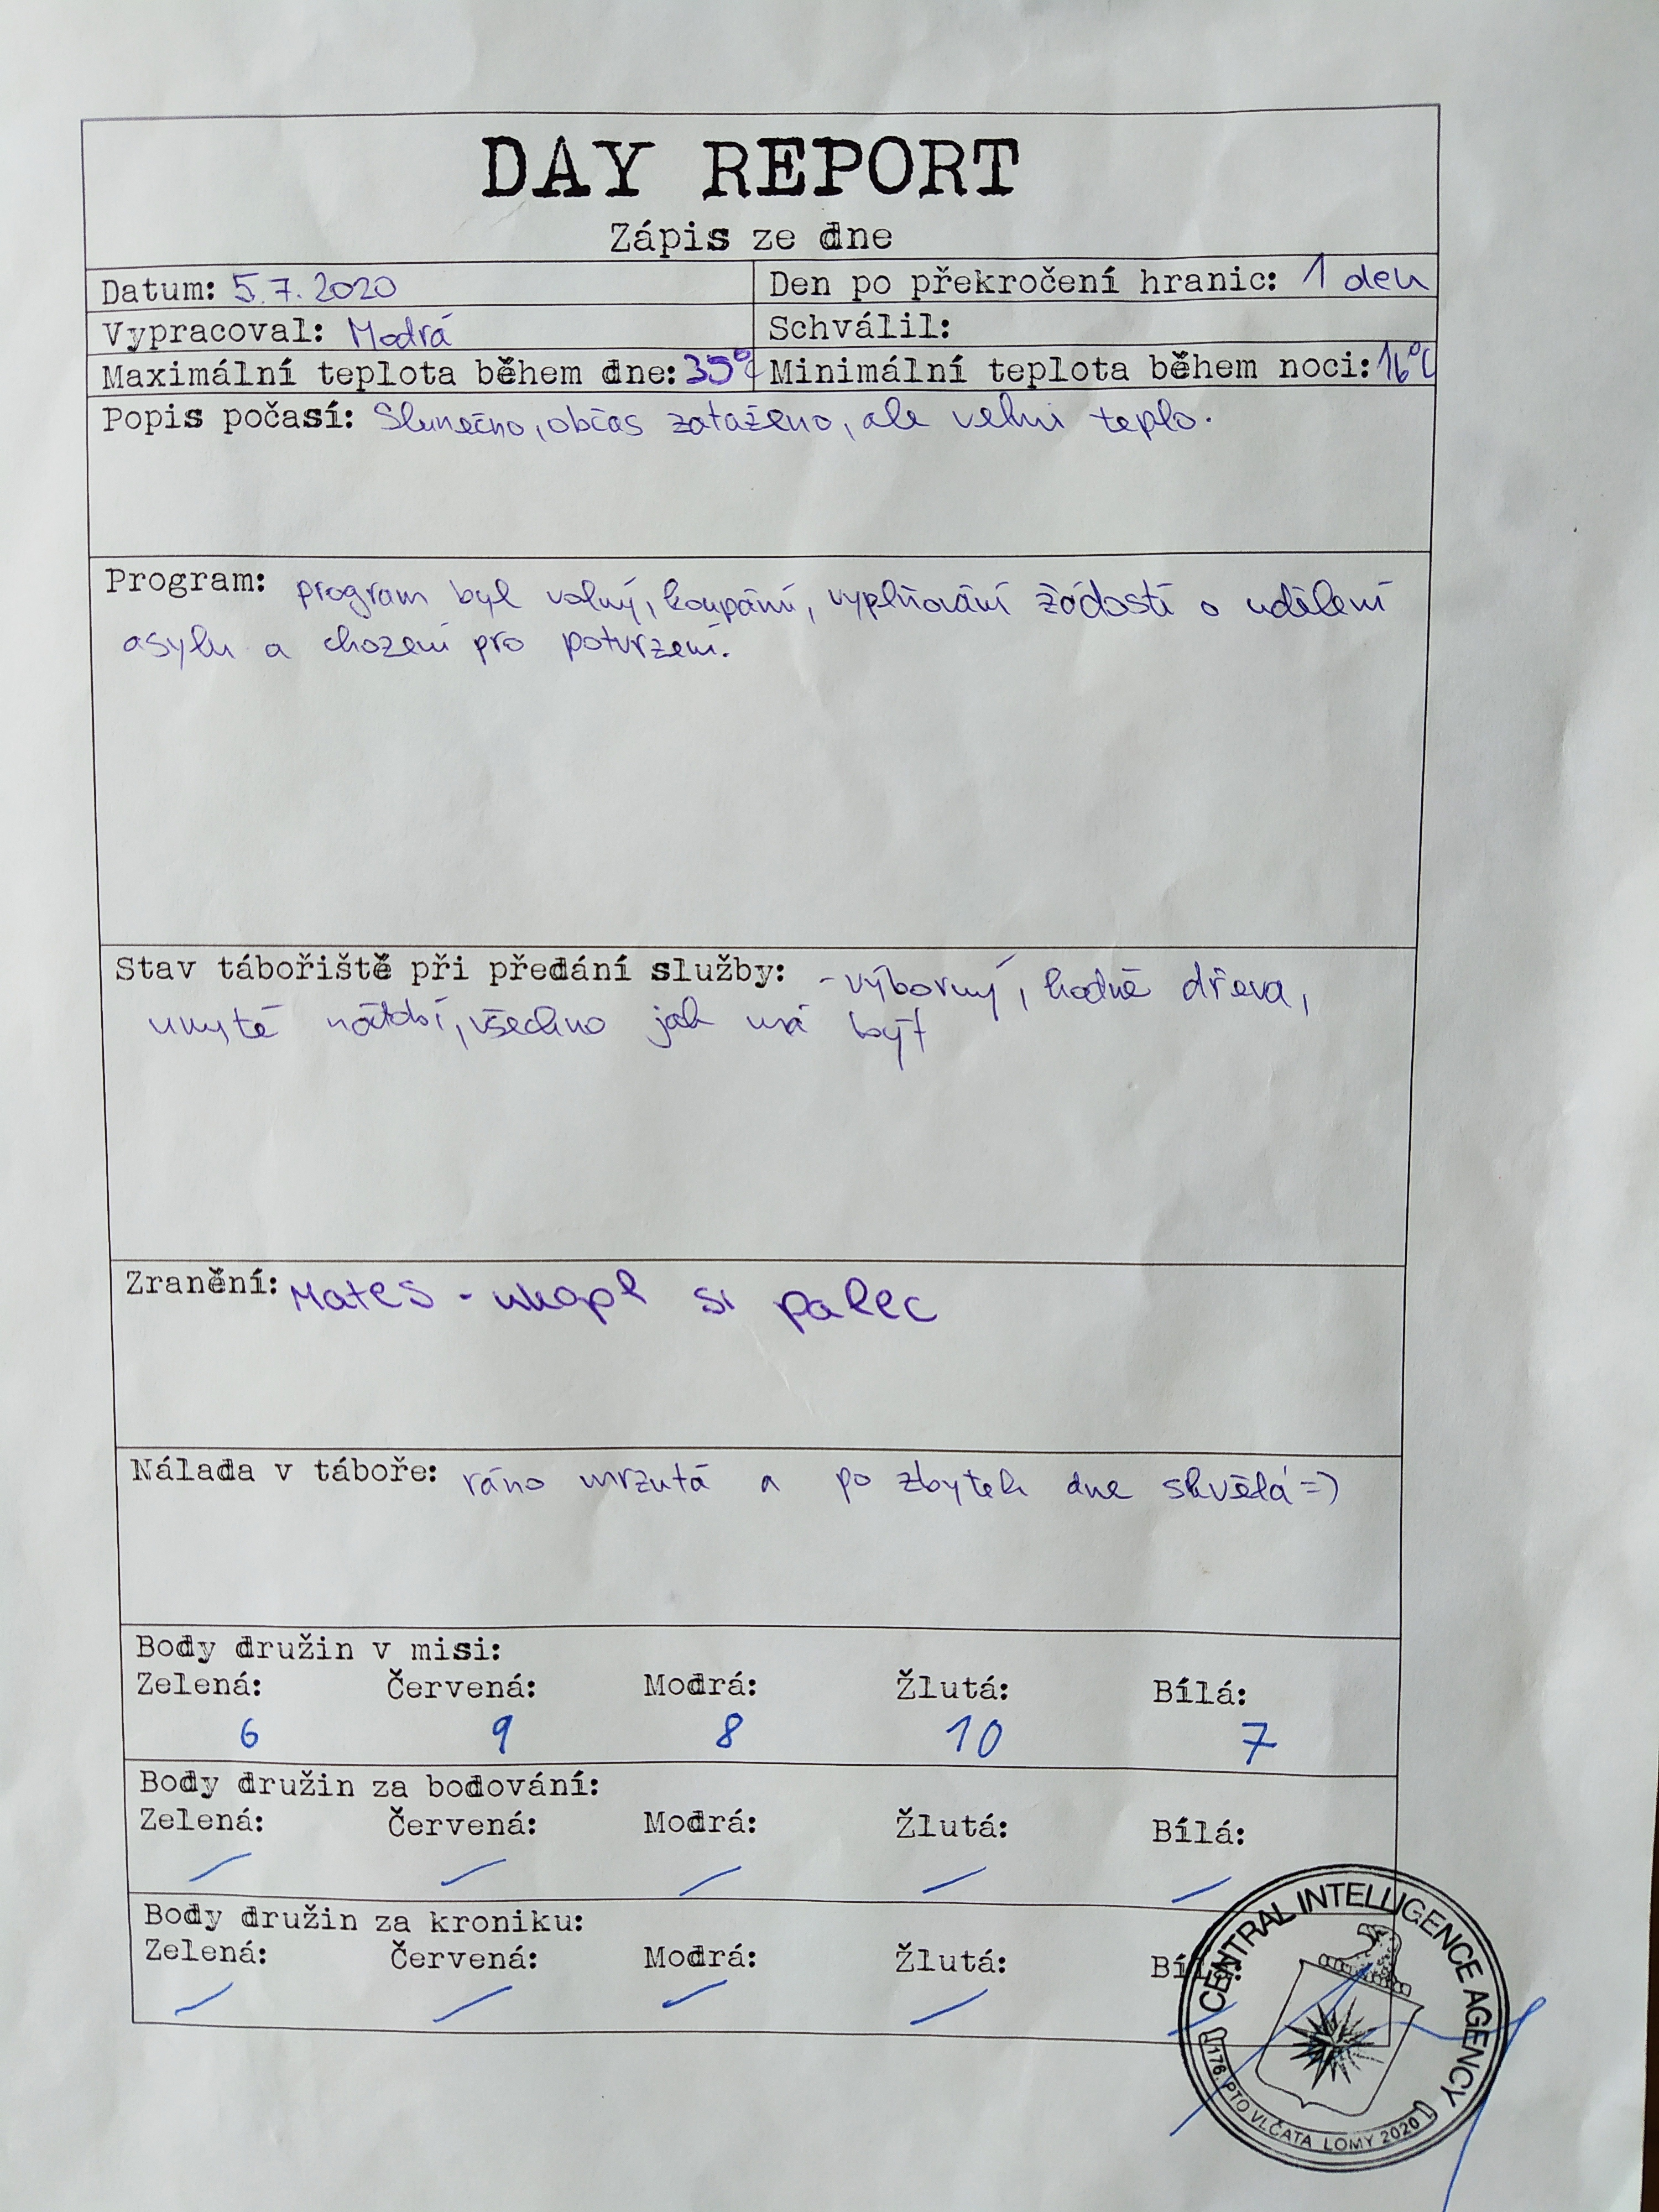 DAY REPORT
Zápis ze dne
Datum: 5.7.2020
Den po překročení hranic: 1 den
Vypracoval: Modrá
Schválil:
Maximální teplota během dne: 35°C
Minimální teplota během noci: 16°C
Popis počasí: Slunečno, občas zataženo, ale velmi teplo.
Program: program byl volný, koupání, vyplňování žádostí o udělení
asylu a chození pro potvrzení.
Stav tábořiště při předání služby: - výborný, hodně dřeva,
umyté nádobí, všechno jak má být
Zranění: Mates - ukopl si palec
Nálada v táboře: ráno mrzutá a po zbytek dne skvělá =)
Body družin v misi:
Zelená: Červená: Modrá: Žlutá: Bílá:
6 9 8 10 7
Body družin za bodování:
Zelená: Červená: Modrá: Žlutá: Bílá:
Body družin za kroniku:
Zelená: Červená: Modrá: Žlutá: Bílá:
CENTRAL INTELLIGENCE AGENCY
176. PTO VLČATA LOMY 2020